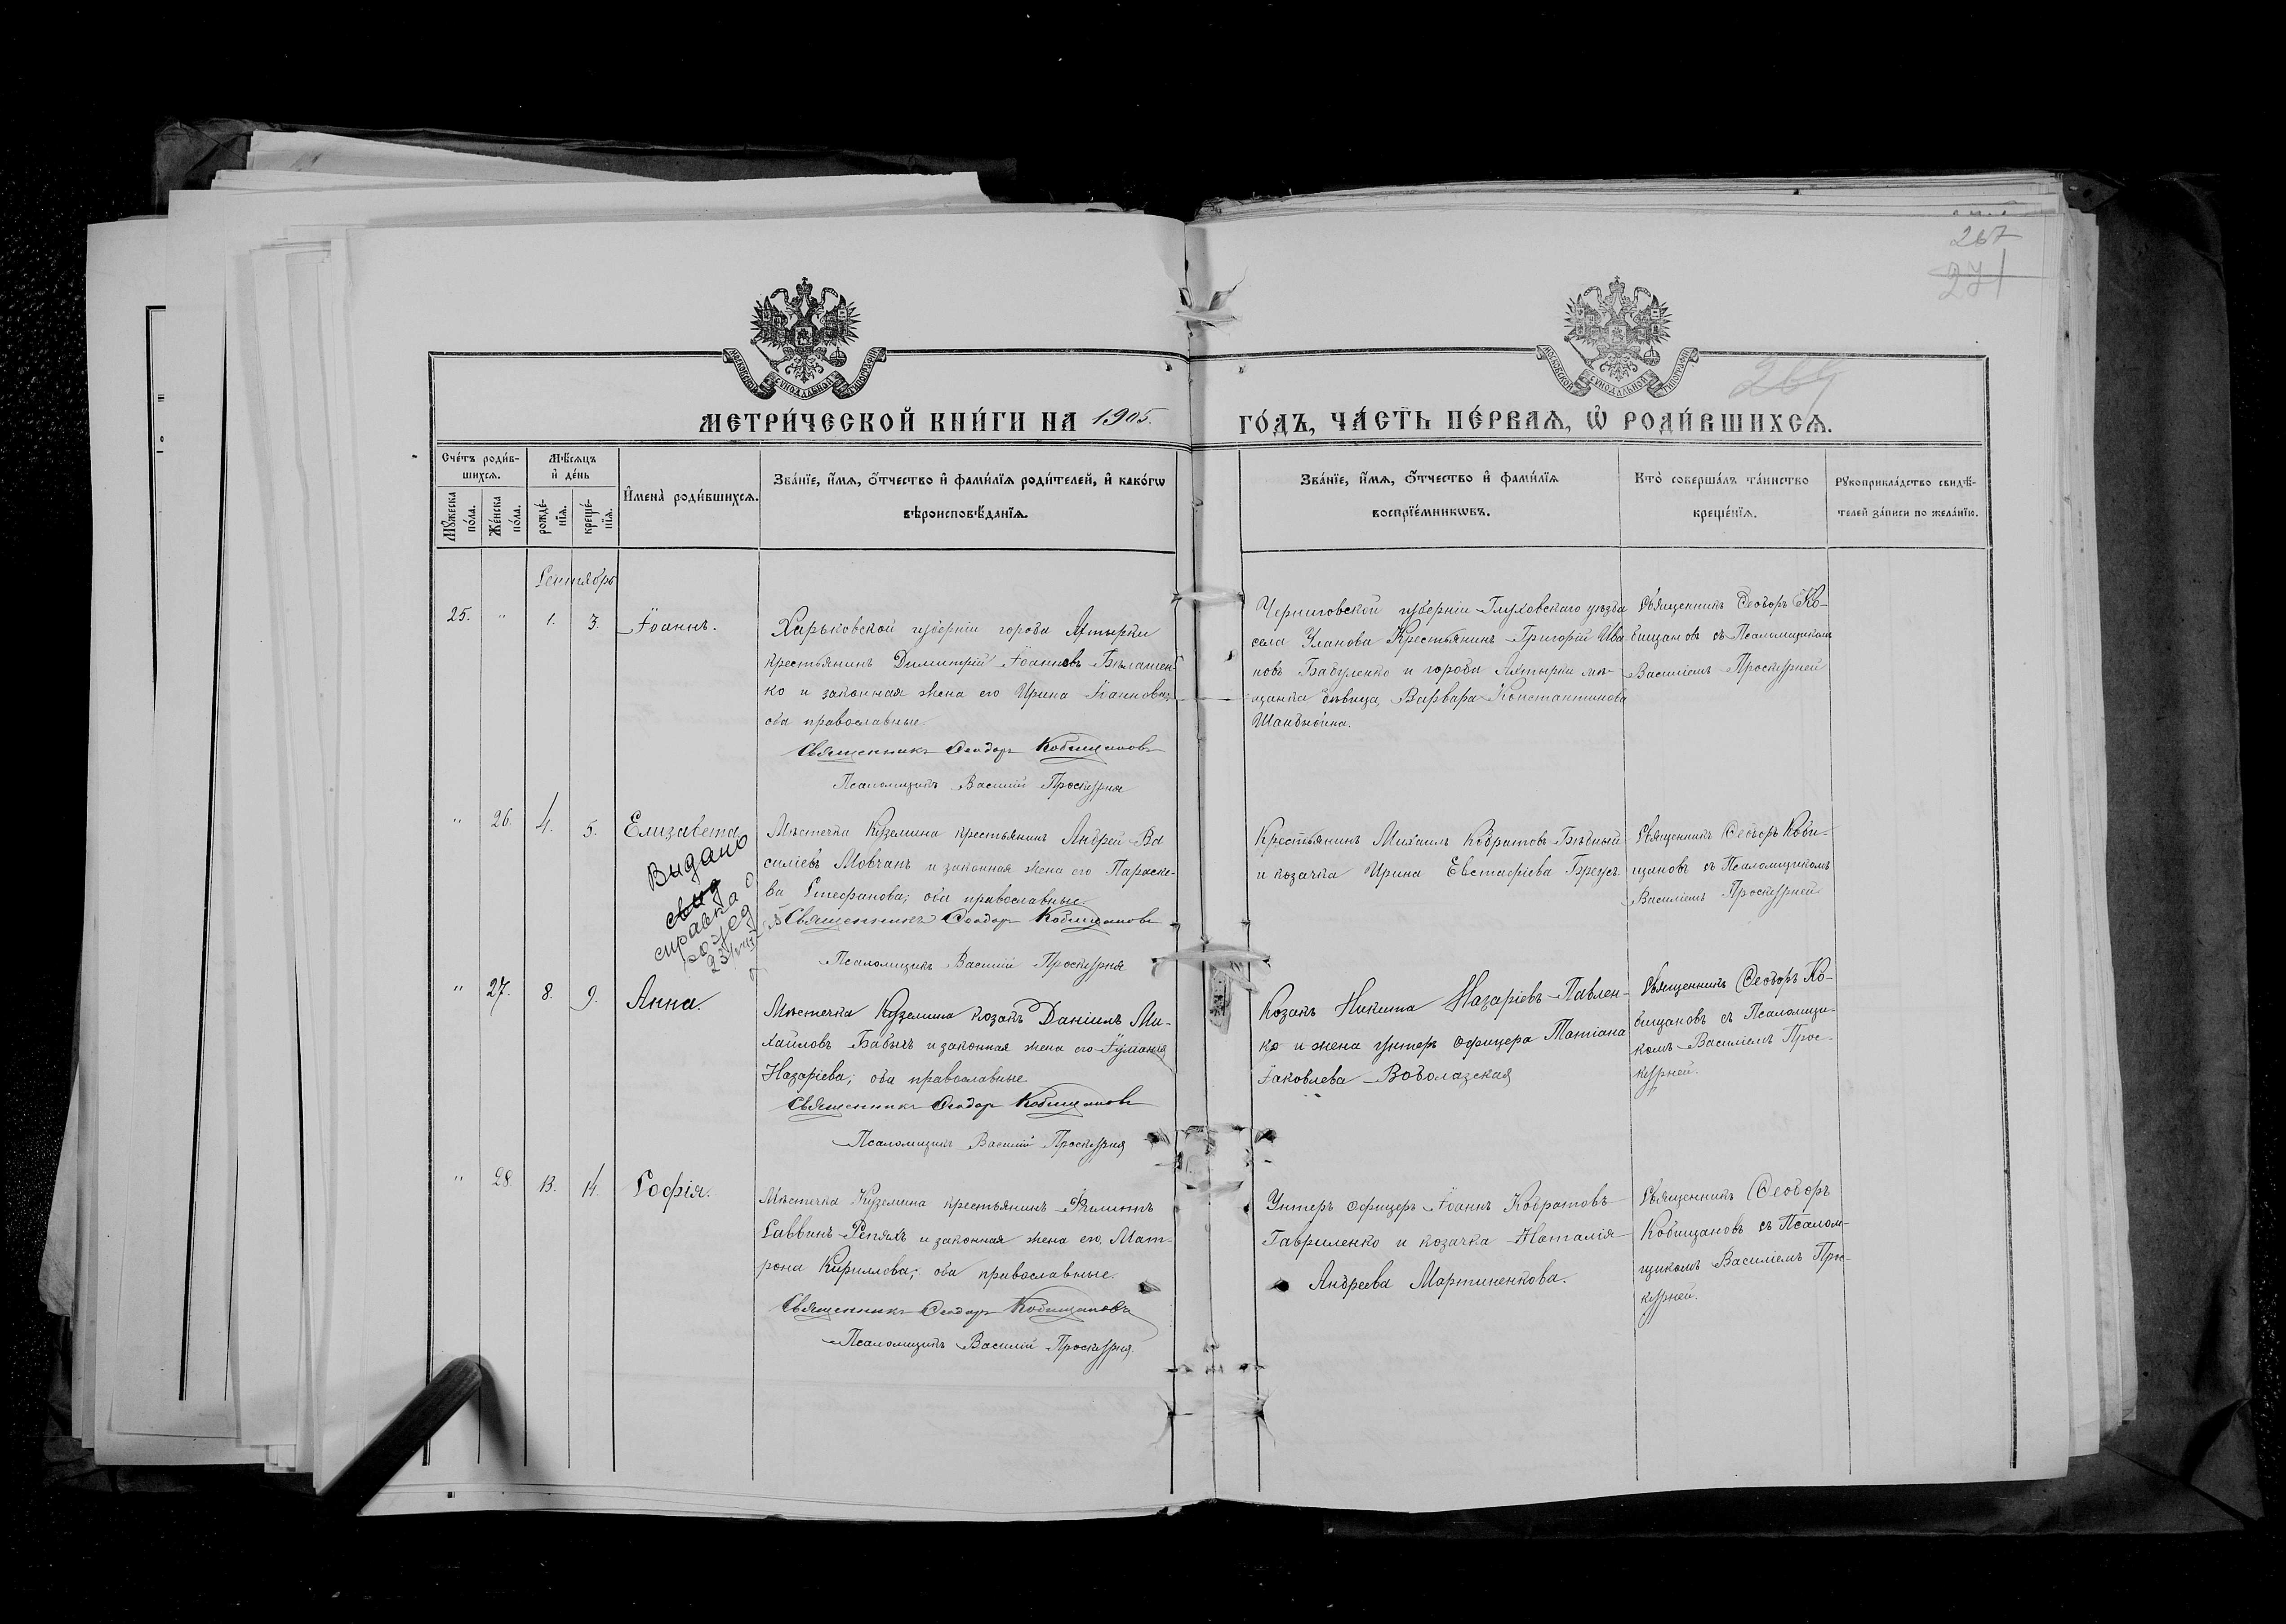 267
271
269
МОСКОВСКОЙ СѴНОДАЛЬНОЙ ТИПОГРАФІИ
МОСКОВСКОЙ СѴНОДАЛЬНОЙ ТИПОГРАФІИ
МЕТРИ́ЧЕСКОЙ КНИ́ГИ НА 1905.
ГО́ДЪ, ЧА́СТЬ ПЕ́РВАѦ, Ѡ҆ РОДИ́ВШИХСѦ.
Сче́тъ роди́в-
шихсѧ.
Мꙋ́жеска
по́ла.
Же́нска
по́ла.
Мѣ́сѧцъ
и҆ де́нь
рожде́-
нїѧ.
креще́-
нїѧ.
И҆мена̀ роди́вшихсѧ.
Зва́нїе, и҆́мѧ, ѻ҆́тчество и҆ фами́лїѧ роди́телей, и҆ како́гѡ
вѣроисповѣ́данїѧ.
Зва́нїе, и҆́мѧ, ѻ҆́тчество и҆ фами́лїѧ
воспрїе́мникѡвъ.
Кто̀ соверша́лъ та́инство
креще́нїѧ.
Рꙋкоприкла́дство свидѣ́-
телей за́писи по жела́нїю.
Сентябрь
25. " 1. 3. Іоаннъ.
Харьковской губерніи города Ахтырки
крестьянинъ Димитрій Іоанновъ Билашен-
ко и законная жена его Ирина Іоаннова;
оба православные.
Священникъ Ѳеодоръ Кобищановъ
Псаломщикъ Василій Проскурня
Черниговской губерніи Глуховскаго уѣзда
села Уланова Крестьянинъ Григорій Ива-
новъ Бабуленко и города Ахтырки мѣ-
щанка дѣвица Варвара Константинова
Шандыбина.
Священникъ Ѳеодоръ Ко-
бищановъ съ Псаломщикомъ
Василіемъ Проскурней
" 26. 4. 5. Елизавета.
Видано
справка о
рожд
23
Мѣстечка Куземина крестьянинъ Андрей Ва-
силіевъ Мовчанъ и законная жена его Параске-
ва Стефанова; оба православные.
Священникъ Ѳеодоръ Кобищановъ
Псаломщикъ Василій Проскурня
Крестьянинъ Михаилъ Кодратовъ Бѣдный
и козачка Ирина Евстафіева Брежъ.
Священникъ Ѳеодоръ Коби-
щановъ съ Псаломщикомъ
Василіемъ Проскурней
" 27. 8. 9. Анна.
Мѣстечка Куземина козакъ Даніилъ Ми-
хайловъ Бабычъ и законная жена его Іуліанія
Назаріева; оба православные
Священникъ Ѳеодоръ Кобищановъ
Псаломщикъ Василій Проскурня
Козакъ Никита Назаріевъ Павлен-
ко и жена унтеръ офицера Татіана
Іаковлева Водолазская
Священникъ Ѳеодоръ Ко-
бищановъ съ Псаломщи-
комъ Василіемъ Прос-
курней.
" 28. 13. 14. Софія.
Мѣстечка Куземина крестьянинъ Филиппъ
Саввинъ Репяхъ и законная жена его, Мат-
рона Кириллова; оба православные.
Священникъ Ѳеодоръ Кобищановъ
Псаломщикъ Василій Проскурня
Унтеръ офицеръ Іоаннъ Кодратовъ
Гавриленко и козачка Наталія
Андреева Мартиненкова.
Священникъ Ѳеодоръ
Кобищановъ съ Псалом-
щикомъ Василіемъ Прос-
курней.